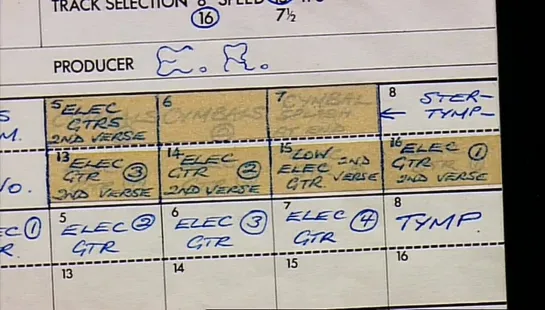 TRACK SELECTION 8 SPEED
16 7½
PRODUCER E. R.
5 ELEC GTRS 2ND VERSE
6 CYMBALS
7 CYMBAL SPLASH
8 STER- TYMP-
M.
13 ELEC GTR 3 2ND VERSE
14 ELEC GTR 2 2ND VERSE
15 LOW ELEC GTR 2ND VERSE
16 ELEC GTR 1 2ND VERSE
NO.
ELEC 1
5 ELEC GTR 2
6 ELEC GTR 3
7 ELEC GTR 4
8 TYMP
13
14
15
16